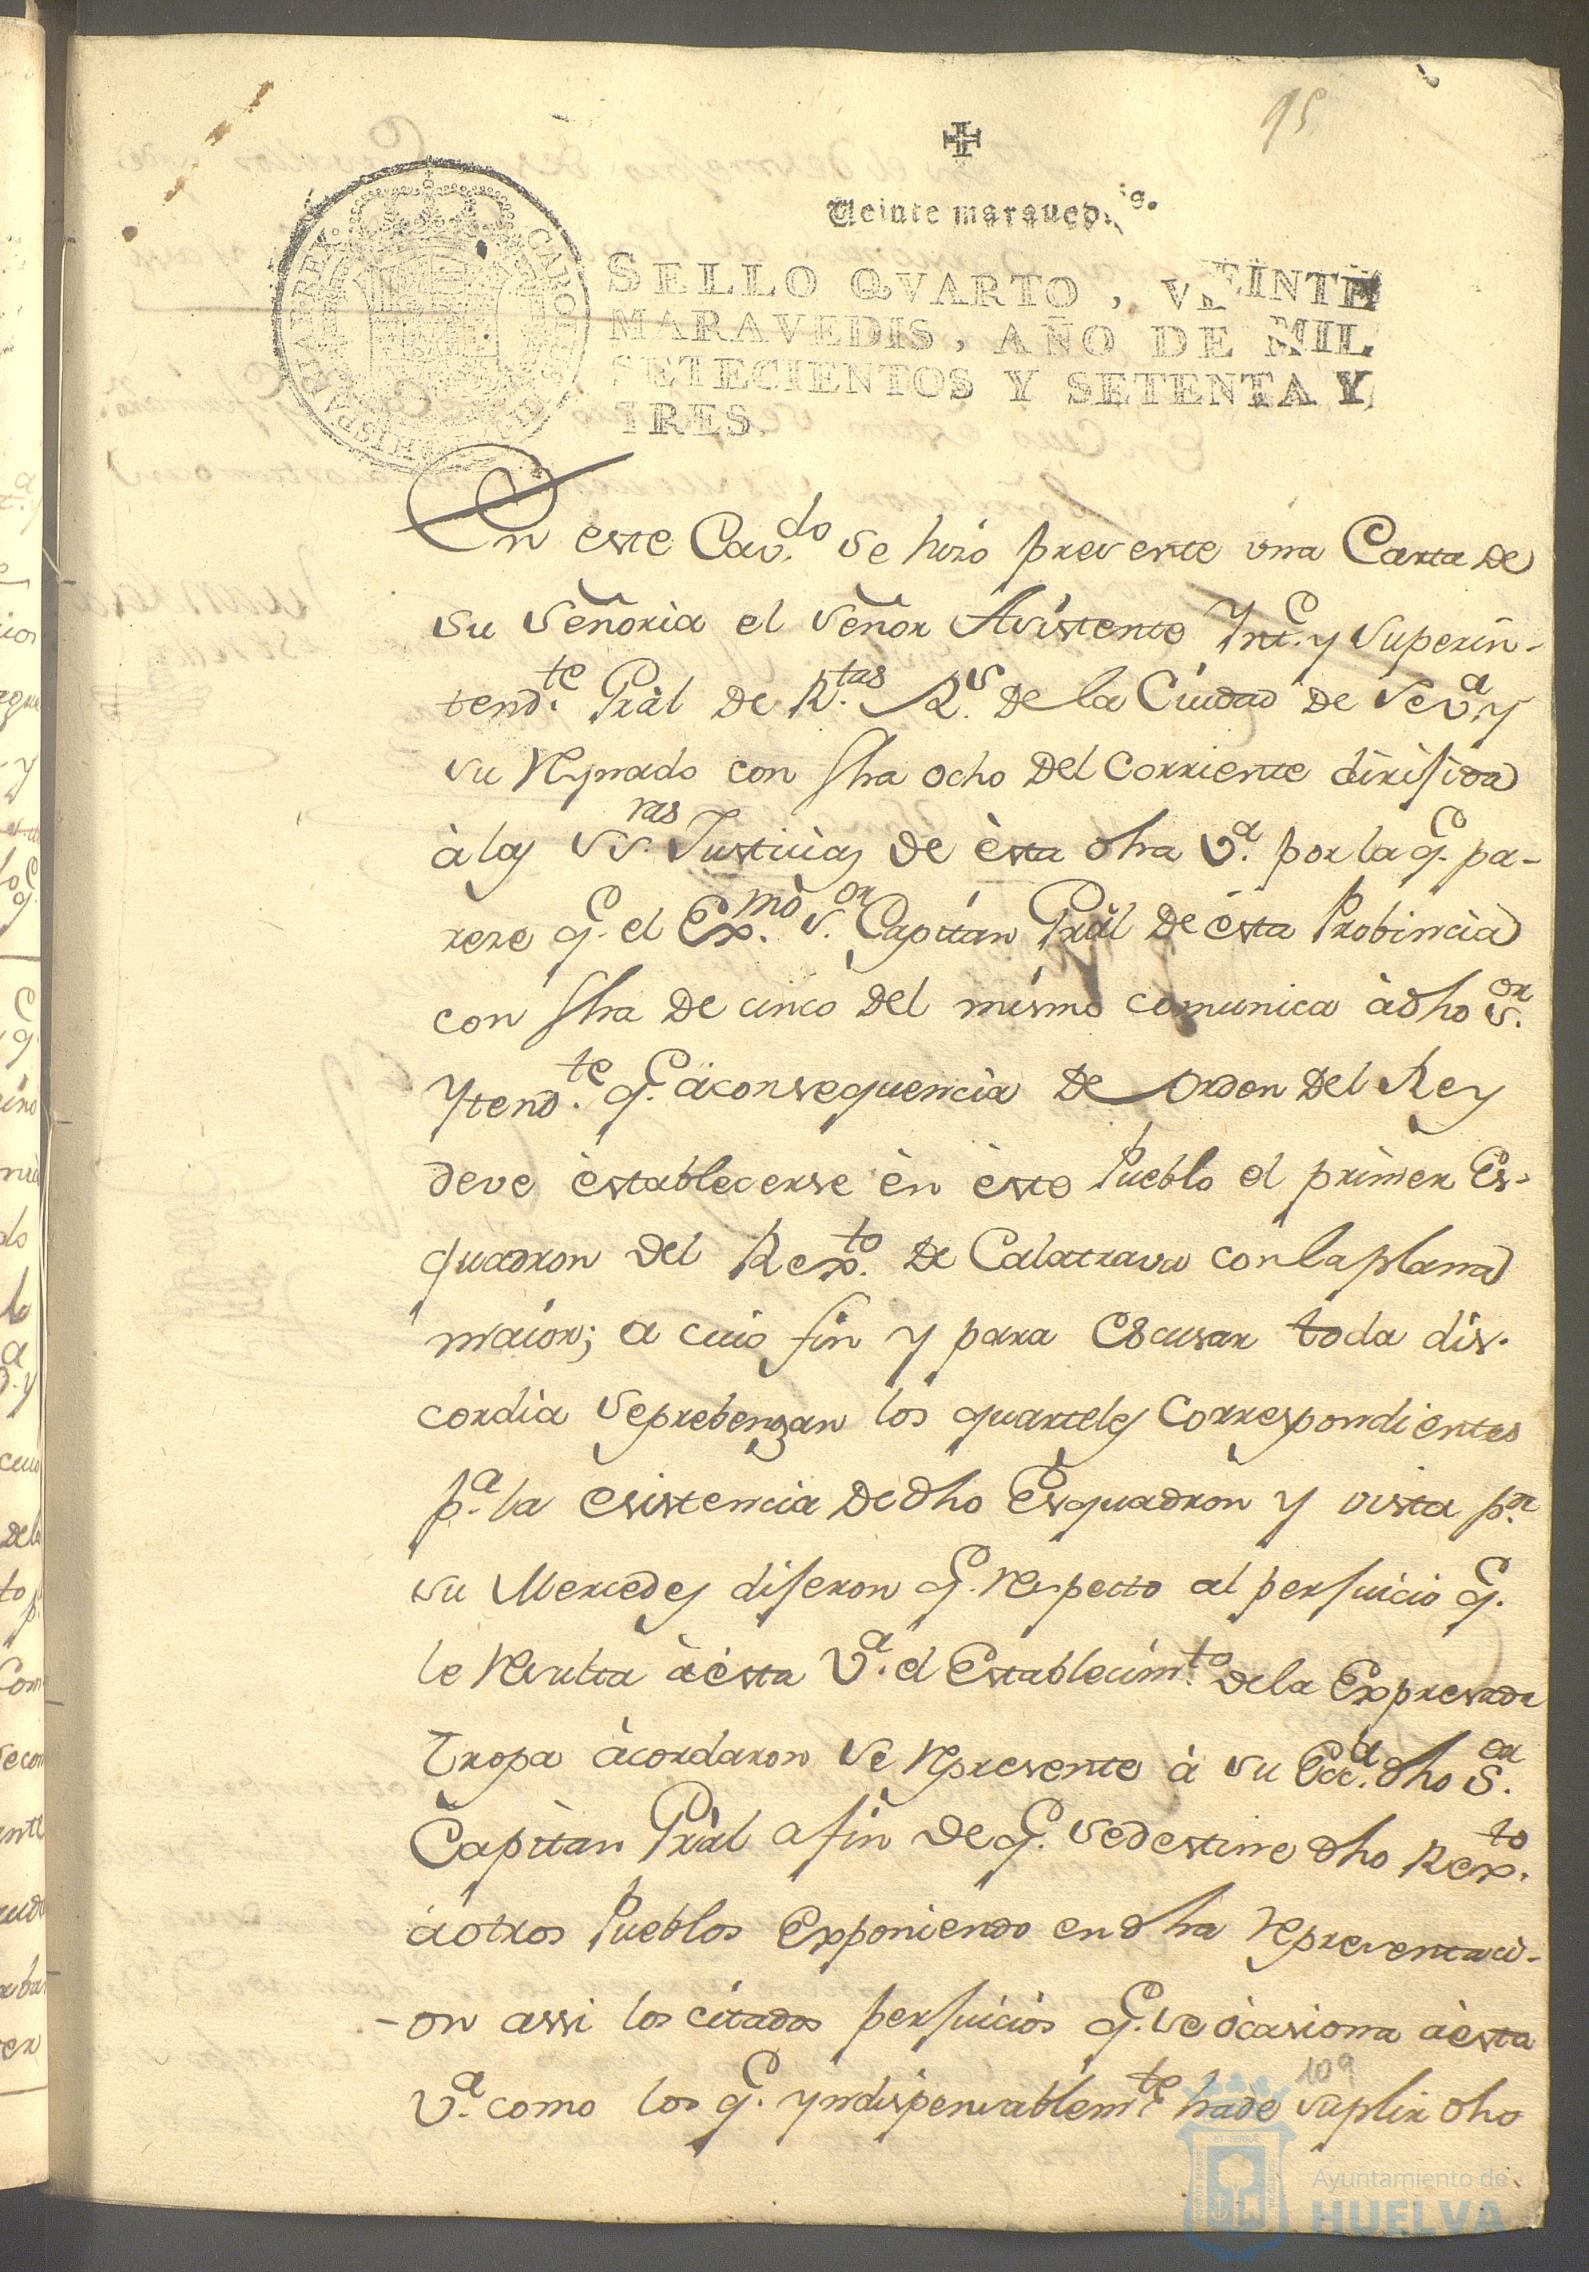 95
Veinte maravedis.
SELLO QVARTO, VEINTE
MARAVEDIS, AÑO DE MIL
SETECIENTOS Y SETENTA Y
TRES.
CAROLUS III D G HISPANIAR REX
En este Cav.do se hizo presente vna Carta de
su Señoria el Señor Asistente Ynt.e y Superin-
tend.te Gral de R.tas R.s de la Ciudad de Sev.a y
su Reynado con fha ocho del Corriente dirijida
à las SS.ras Justicias de èsta dha V.a por la q.e pa-
reze q.e el Ex.mo S.or Capitàn Gral de èsta Probincia
con fha de cinco del mismo comunica à dho S.or
Ytend.te q.e à consequencia de orden del Rey
deve èstablecerse èn èste Pueblo el primer Es-
quadron del Rex.to de Calatrava con la plana
maior; a cuio fin y para escusar toda dis-
cordia se prebengan los quarteles correspondientes
p.a la esistencia de dho Esquadron y vista p.r
su Mercedes dijeron q.e respecto al perjuicio q.e
le resulta à èsta V.a el Establecim.to de la Expresada
tropa àcordaron se represente à su Exc.a dho S.or
Capitàn Gràl a fin de q.e se destine dho Rex.to
à otros Pueblos Exponiendo en dha representaci-
-on assi los citados perjuicios q.e se òcasiona à esta
V.a como los q.e yndispensablem.te hade suplir dho
109
Ayuntamiento de
HUELVA